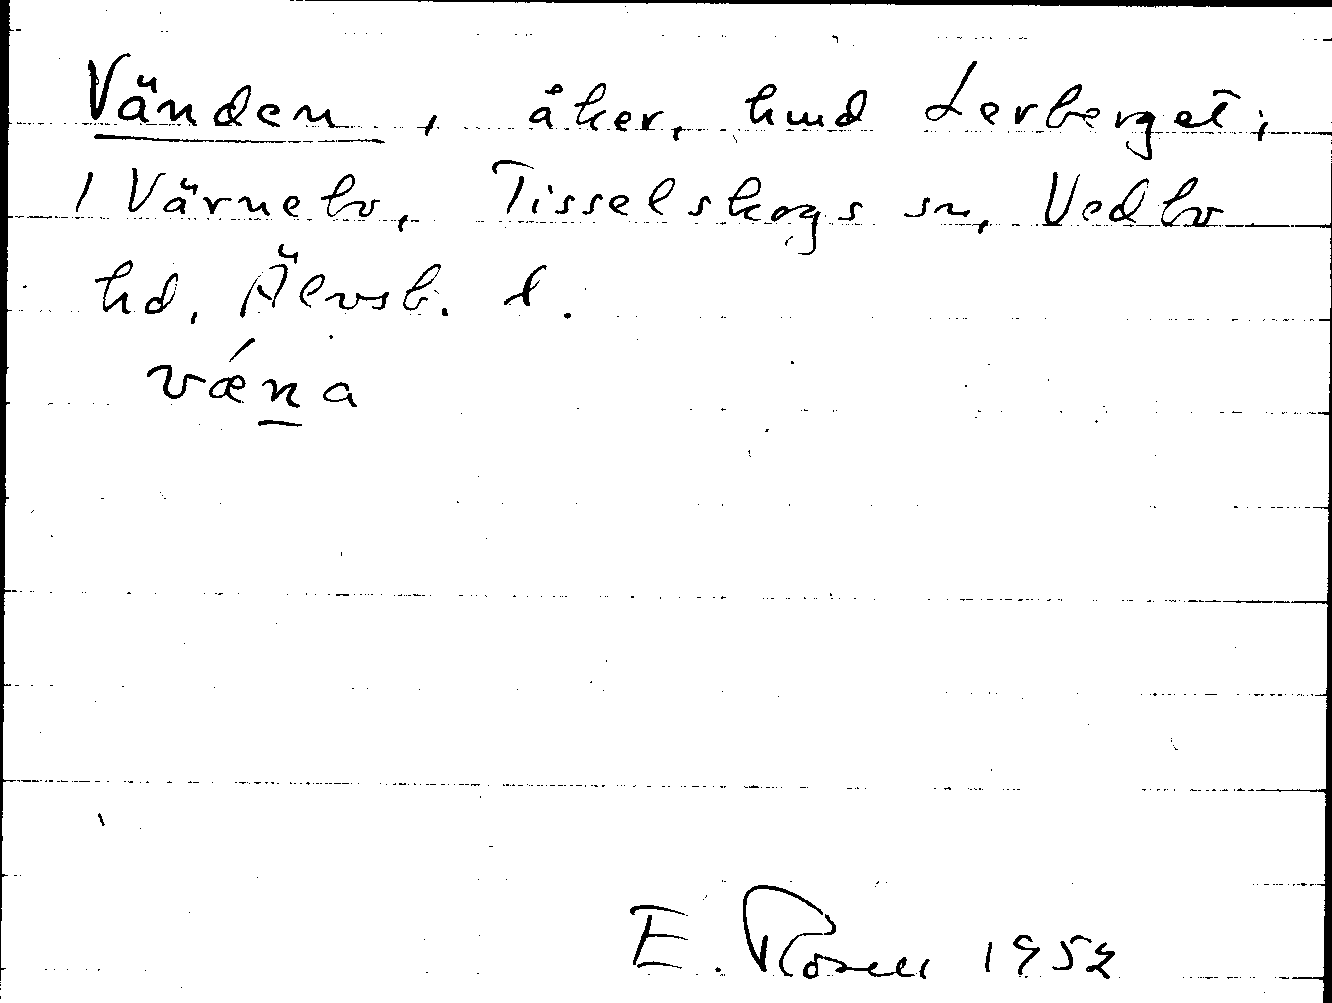 Vänden, åker, hmd Lerberget,
1 Värnebo, Tisselskogs sn, Vedbo
hd, Älvsb. l.
vǽna
E. Rosell 1952